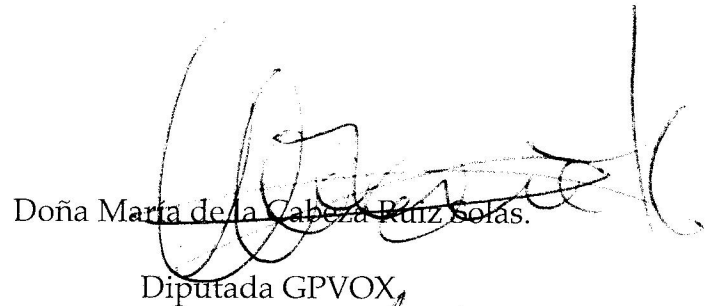 Doña María de la Cabeza Ruiz Solás.
Diputada GPVOX